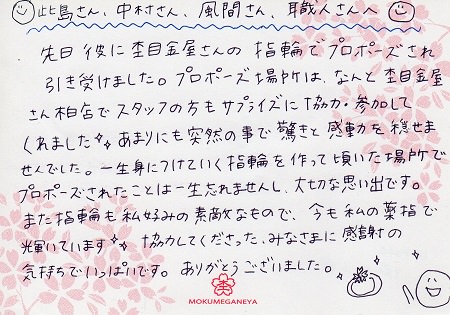 此島さん、中村さん、風間さん、職人さんへ
先日彼に杢目金屋さんの指輪でプロポーズされ
引き受けました。プロポーズ場所は、なんと杢目金屋
さん柏店でスタッフの方もサプライズに協力・参加して
くれました あまりにも突然の事で驚きと感動を穏せま
せんでした。一生身につけていく指輪を作って頂いた場所で
プロポーズされたことは一生忘れませんし、大切な思い出です。
また指輪も私好みの素敵なもので、今も私の薬指で
輝いています 協力してくださった、みなさまに感謝の
気持ちでいっぱいです。ありがとうございました。
MOKUMEGANEYA